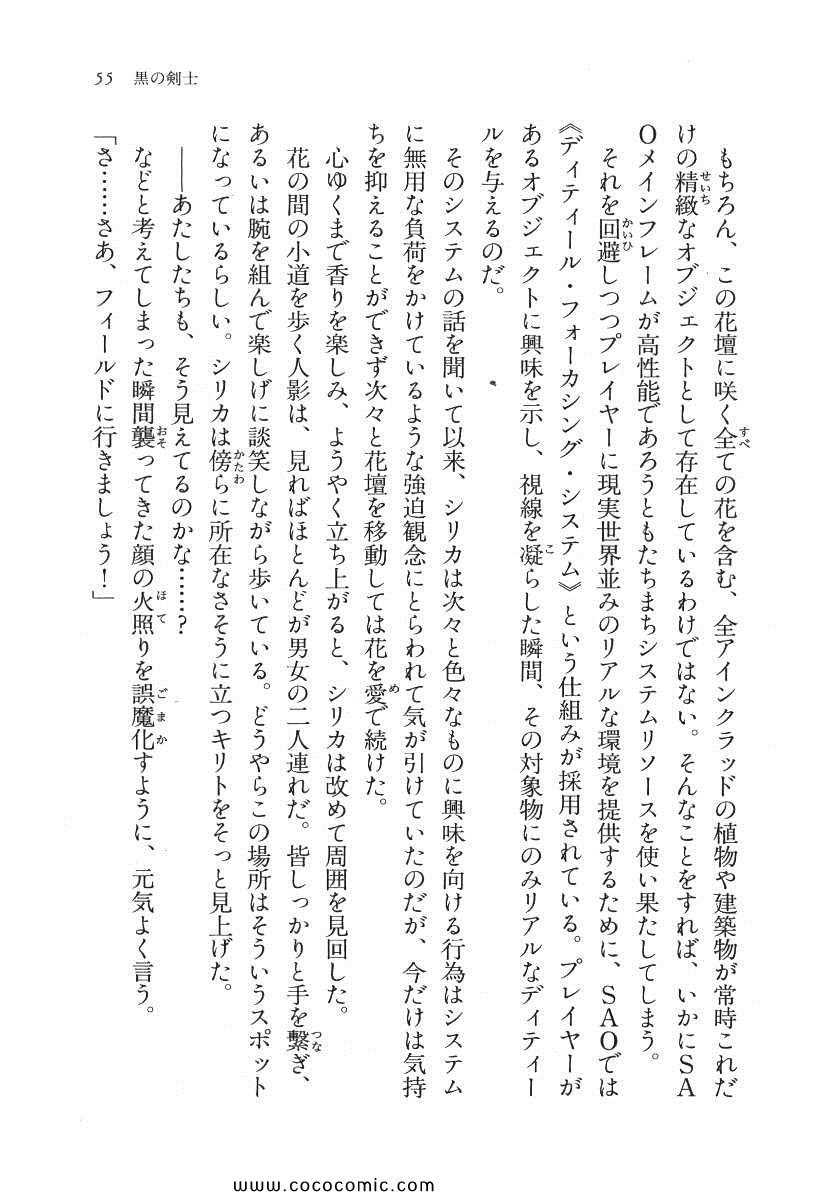 55 黒の剣士
もちろん、この花壇に咲く全ての花を含む、全アインクラッドの植物や建築物が常時これだ
けの精緻なオブジェクトとして存在しているわけではない。そんなことをすれば、いかにSA
Oメインフレームが高性能であろうともたちまちシステムリソースを使い果たしてしまう。
それを回避しつつプレイヤーに現実世界並みのリアルな環境を提供するために、SAOでは
《ディティール・フォーカシング・システム》という仕組みが採用されている。プレイヤーが
あるオブジェクトに興味を示し、視線を凝らした瞬間、その対象物にのみリアルなディティー
ルを与えるのだ。
そのシステムの話を聞いて以来、シリカは次々と色々なものに興味を向ける行為はシステム
に無用な負荷をかけているような強迫観念にとらわれて気が引けていたのだが、今だけは気持
ちを抑えることができず次々と花壇を移動しては花を愛で続けた。
心ゆくまで香りを楽しみ、ようやく立ち上がると、シリカは改めて周囲を見回した。
花の間の小道を歩く人影は、見ればほとんどが男女の二人連れだ。皆しっかりと手を繋ぎ、
あるいは腕を組んで楽しげに談笑しながら歩いている。どうやらこの場所はそういうスポット
になっているらしい。シリカは傍らに所在なさそうに立つキリトをそっと見上げた。
――あたしたちも、そう見えてるのかな……？
などと考えてしまった瞬間襲ってきた顔の火照りを誤魔化すように、元気よく言う。
「さ……さあ、フィールドに行きましょう！」
www.cococomic.com